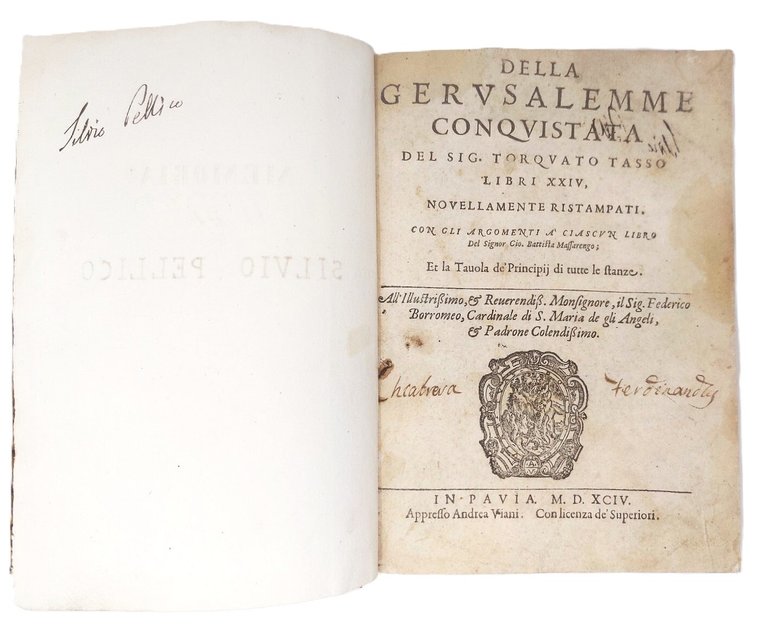 Silvio Pellico
SILVIO PELLICO
DELLA
GERVSALEMME
CONQVISTATA
DEL SIG. TORQVATO TASSO
LIBRI XXIV,
NOVELLAMENTE RISTAMPATI.
CON GLI ARGOMENTI A' CIASCVN LIBRO
Del Signor Gio. Battista Massarengo;
Et la Tauola de' Principij di tutte le stanze.
All'Illustrißimo, & Reuerendiß. Monsignore, il Sig. Federico
Borromeo, Cardinale di S. Maria de gli Angeli,
& Padrone Colendißimo.
Ferdinandus
IN PAVIA. M. D. XCIV.
Appresso Andrea Viani. Con licenza de' Superiori.